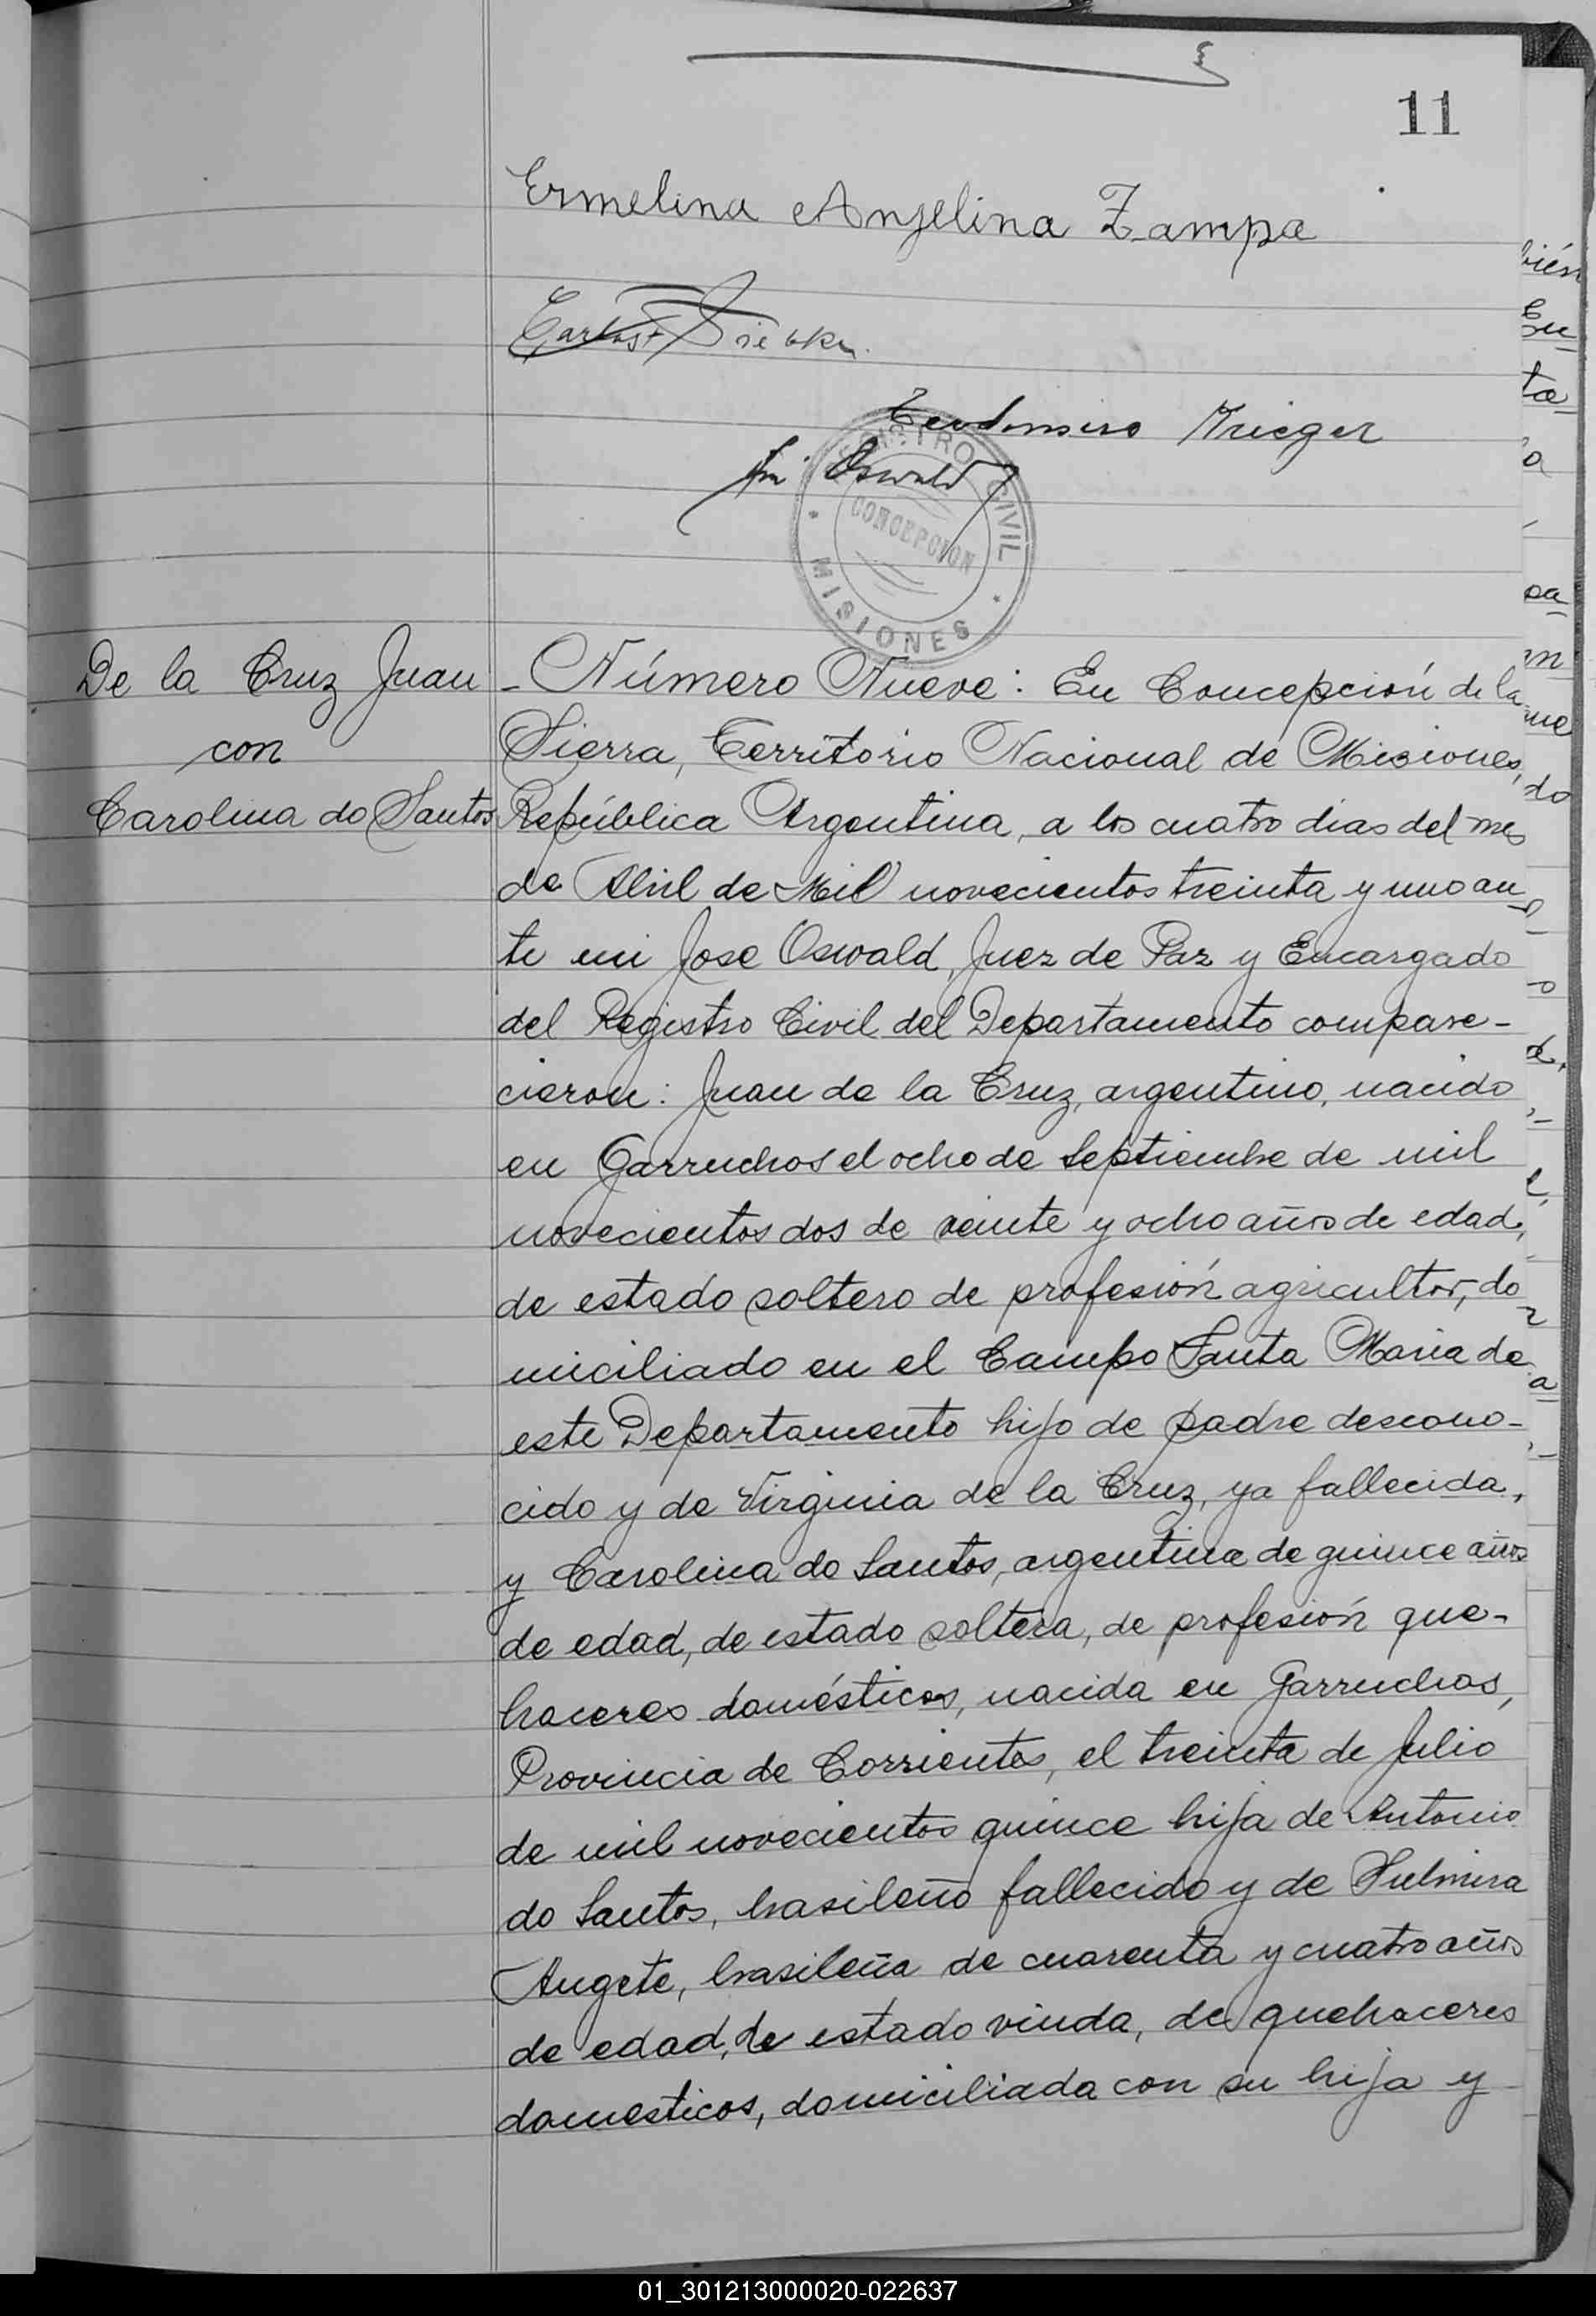 11
Ermelina Anjelina Zampa
Carlos
Teodomiro Krieger
Oswald
REGISTRO CIVIL
CONCEPCION
MISIONES
De la Cruz Juan
con
Carolina do Santos
- Número Nueve: En Concepción de la
Sierra, Territorio Nacional de Misiones,
República Argentina, a los cuatro dias del mes
de Abril de Mil novecientos treinta y uno an
te mi Jose Oswald, Juez de Paz y Encargado
del Registro Civil del Departamento compare-
cieron: Juan de la Cruz, argentino, nacido
en Garruchos el ocho de Septiembre de mil
novecientos dos de veinte y ocho años de edad,
de estado soltero de profesión agricultor, do
miciliado en el Campo Santa Maria de
este Departamento hijo de padre descono-
cido y de Virginia de la Cruz, ya fallecida,
y Carolina do Santos, argentina de quince años
de edad, de estado soltera, de profesión que-
haceres domésticos, nacida en Garruchos,
Provincia de Corrientes, el treinta de Julio
de mil novecientos quince hija de Antonio
do Santos, brasileño fallecido y de
Augete, brasileña de cuarenta y cuatro años
de edad, de estado viuda, de quehaceres
domesticos, domiciliada con su hija y
01_301213000020-022637